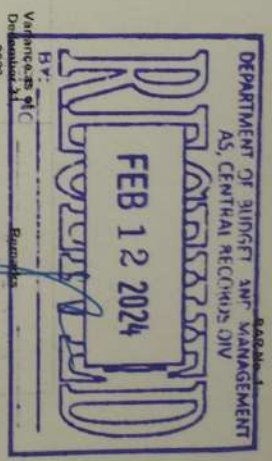 BAR No. 1
DEPARTMENT OF BUDGET AND MANAGEMENT
AS, CENTRAL RECORDS DIV
RECEIVED
FEB 12 2024
BY:
Variance as of
December 31
Remarks